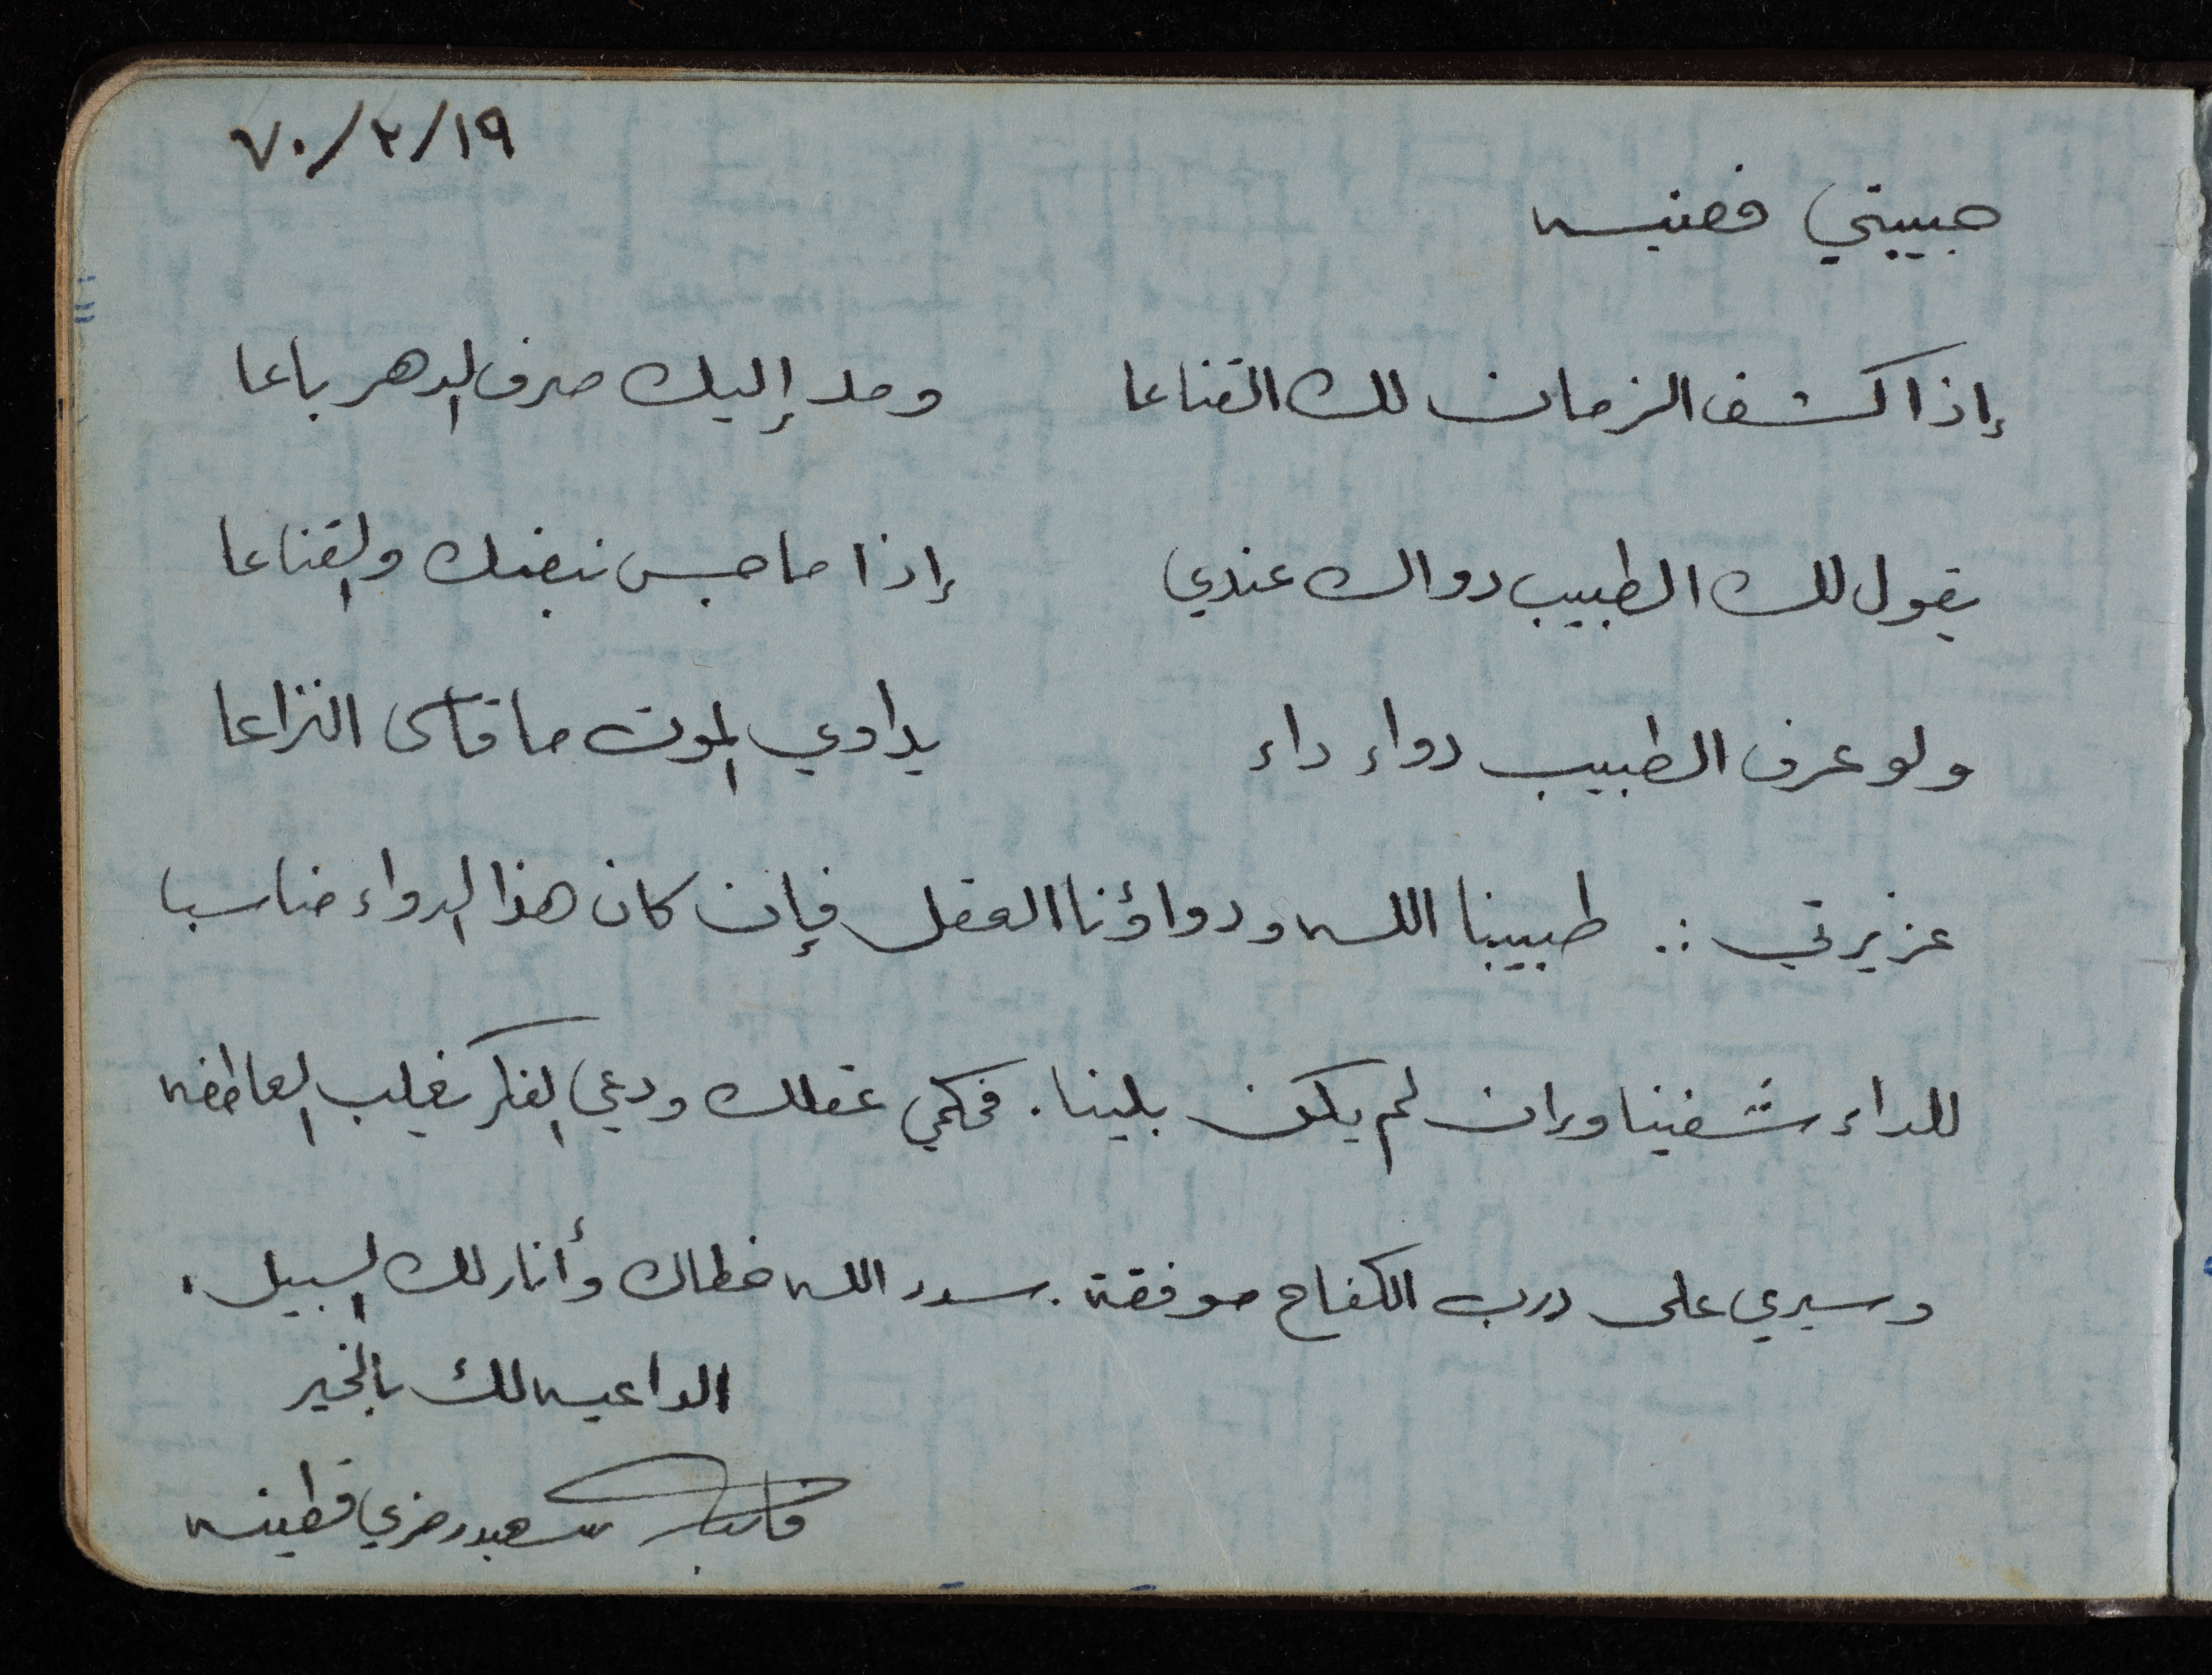 ٧٠/٢/١٩
حبيبتي فضيه
إذا كشف الزمان لك القناعا ومد إليك صرف الدهر باعا
يقول لك الطبيب دواك عندي إذا ما جس نبضك والقناعا
ولو عرف الطبيب دواء داء يداوي الموت ما قاسى النزاعا
عزيزتي :. طبيبنا الله ودواؤنا العقل فإن كان هذا الدواء مناسبا
للداء شفينا وإن لم يكن بلينا. فحكمي عقلك ودعي الفكر يغلب العاطفه
وسيري على درب الكفاح موفقة. سدد الله خطاك وأنار لك السبيل.
الداعيه لك بالخير
سعيد رمزي قطينه